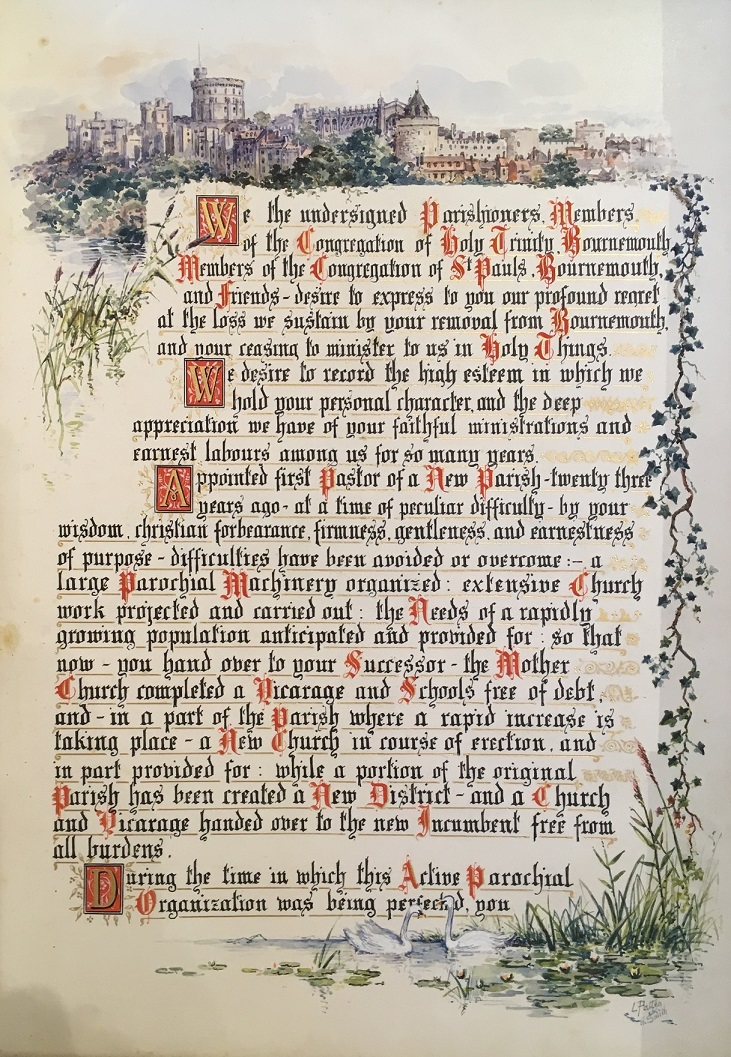 We the undersigned Parishioners, Members
of the Congregation of Holy Trinity, Bournemouth,
Members of the Congregation of St Pauls, Bournemouth,
and Friends - desire to express to you our profound regret
at the loss we sustain by your removal from Bournemouth,
and your ceasing to minister to us in Holy Things.
We desire to record the high esteem in which we
hold your personal character, and the deep
appreciation we have of your faithful ministrations and
earnest labours among us for so many years.
Appointed first Pastor of a New Parish - twenty three
years ago - at a time of peculiar difficulty - by your
wisdom, christian forbearance, firmness, gentleness, and earnestness
of purpose - difficulties have been avoided or overcome :- a
large Parochial Machinery organized : extensive Church
work projected and carried out : the Needs of a rapidly
growing population anticipated and provided for : so that
now - you hand over to your Successor - the Mother
Church completed a Vicarage and Schools free of debt,
and - in a part of the Parish where a rapid increase is
taking place - a New Church in course of erection, and
in part provided for : while a portion of the original
Parish has been created a New District - and a Church
and Vicarage handed over to the new Incumbent free from
all burdens.
During the time in which this Active Parochial
Organization was being perfected, you